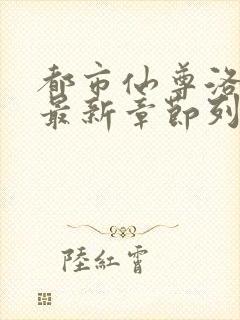 都市仙尊洛
最新章節列
陸紅霄